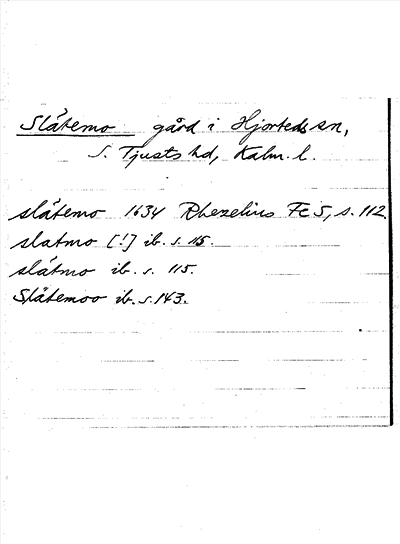 Slåtemo gård i Hjorteds sn,
S. Tjusts hd, Kalm. l.
slåtemo 1634 Rhezelius Fc 5, s. 112.
slatmo [!] ib. s. 115.
slåtmo ib. s. 115.
Slåtemoo ib. s. 143.